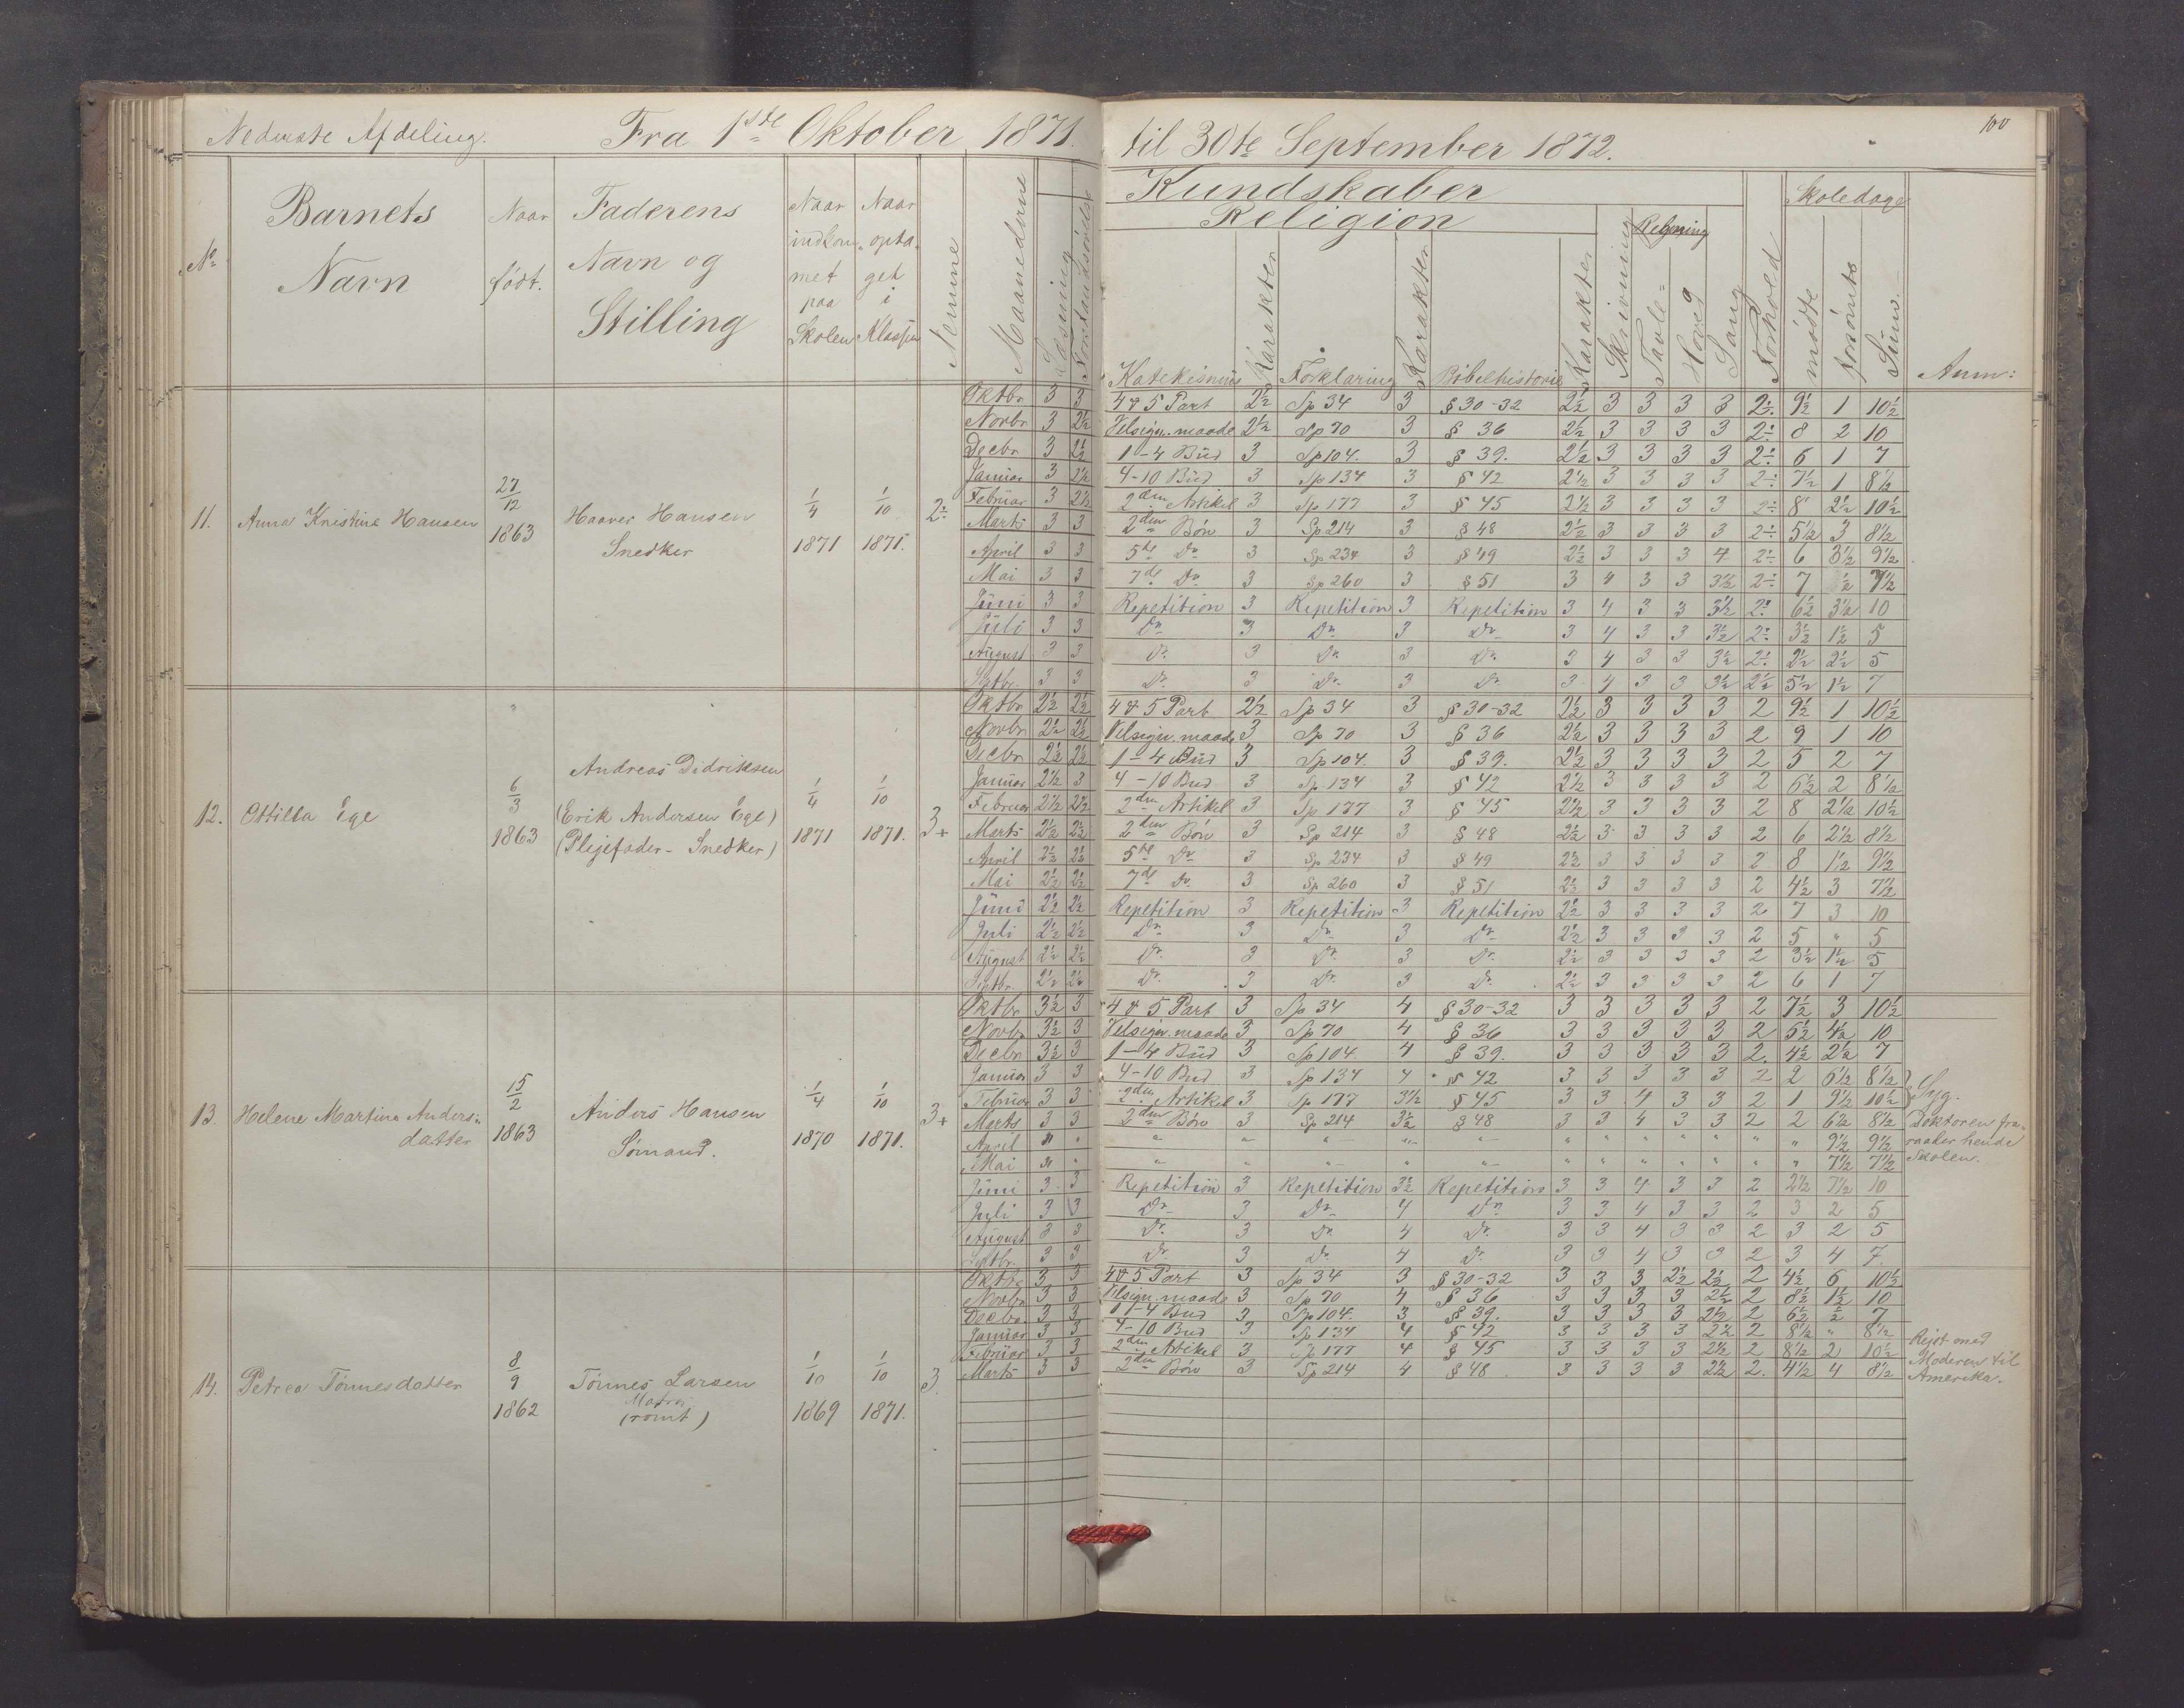 100
Nederste Afdeling. Fra 1ste Oktober 1871. til 30te September 1872.
No Barnets Navn Naar født. Faderens Navn og Stilling Naar indkommet paa Skolen Naar optaget i Klassen Nemme Maanederne Læsning Forstandsøvelse
Kundskaber
Religion
Katekismus Karakter Forklaring Karakter Bibelhistorie Karakter Skrivning Regning Tavle= Hoved Sang Forhold
Skoledage
mødte forsømte Sum. Anm:
11. Anna Kristine Hansen 27/12 1863 Haaver Hansen Snedker 1/4 1871 1/10 1871. 2÷
Oktbr 3 3 4 & 5 Part 2½ Sp 34 3 § 30-32 2½ 3 3 3 3 2÷ 9½ 1 10½
Novbr 3 2½ Velsign. maade 2½ Sp 70 3 § 36 2½ 3 3 3 3 2÷ 8 2 10
Decbr 3 2½ 1-4 Bud 3 Sp 104. 3 § 39. 2½ 3 3 3 3 2÷ 6 1 7
Januar 3 2½ 4-10 Bud 3 Sp 134 3 § 42 2½ 3 3 3 3 2÷ 7½ 1 8½
Februar 3 2½ 2den Artikel 3 Sp 177 3 § 45 2½ 3 3 3 3 2÷ 8 2½ 10½
Marts 3 3 2den Bøn 3 Sp 214 3 § 48 2½ 3 3 3 3 2÷ 5½ 3 8½
April 3 3 5te Do 3 Sp 234 3 § 49 2½ 3 3 3 4 2÷ 6 3½ 9½
Mai 3 3 7de Do 3 Sp 260 3 § 51 3 4 3 3 3½ 2÷ 7 ½ 7½
Juni 3 3 Repetition 3 Repetition 3 Repetition 3 4 3 3 3½ 2÷ 6½ 3½ 10
Juli 3 3 Do 3 Do 3 Do 3 4 3 3 3½ 2÷ 3½ 1½ 5
August 3 3 Do 3 Do 3 Do 3 4 3 3 3½ 2÷ 2½ 2½ 5
Septbr. 3 3 Do 3 Do 3 Do 3 4 3 3 3½ 2½ 5½ 1½ 7
12. Ottilla Ege 6/3 1863 Andreas Didriksen (Erik Andersen Ege) (Plejefader - Snedker) 1/4 1871 1/10 1871. 3+
Oktbr 2½ 2½ 4 & 5 Part 2½ Sp 34 3 § 30-32 2½ 3 3 3 3 2 9½ 1 10½
Novbr 2½ 2½ Velsign. maade 3 Sp 70 3 § 36 2½ 3 3 3 3 2 9 1 10
Decbr 2½ 2½ 1-4 Bud 3 Sp 104. 3 § 39. 2½ 3 3 3 3 2 5 2 7
Januar 2½ 3 4-10 Bud 3 Sp. 134 3 § 42 2½ 3 3 3 3 2 6½ 2 8½
Februar 2½ 2½ 2den Artikel 3 Sp 177 3 § 45 2½ 3 3 3 3 2 8 2½ 10½
Marts 2½ 2½ 2den Bøn 3 Sp 214 3 § 48 2½ 3 3 3 3 2 6 2½ 8½
April 2½ 2½ 5te Do 3 Sp. 234 3 § 49 2½ 3 3 3 3 2 8 1½ 9½
Mai 2½ 2½ 7de Do 3 Sp 260 3 § 51 2½ 3 3 3 3 2 4½ 3 7½
Juni 2½ 2½ Repetition 3 Repetition 3 Repetition 2½ 3 3 3 3 2 7 3 10
Juli 2½ 2½ Do 3 Do 3 Do 2½ 3 3 3 3 2 5 " 5
August 2½ 2½ Do 3 Do 3 Do 2½ 3 3 3 3 2 3½ 1½ 5
Septbr. 2½ 2½ Do 3 Do 3 Do 2½ 3 3 3 3 2 6 1 7
13. Helene Martine Andersdatter 15/2 1863 Anders Hansen Sømand. 1/4 1870 1/10 1871. 3+
Oktbr 3½ 3 4 & 5 Part 3 Sp 34 4 § 30-32 3 3 3 3 3 2 7½ 3 10½
Novbr 3½ 3 Velsign. maade 3 Sp 70 4 § 36 3 3 3 3 3 2 5½ 4½ 10
Decbr 3½ 3 1-4 Bud 3 Sp 104. 4 § 39. 3 3 3 3 3 2. 4½ 2½ 7
Januar 3 3 4-10 Bud 3 Sp 134 4 § 42 3 3 3 3 3 2 2 6½ 8½
Februar 3 3 2den Artikel 3 Sp 177 3½ § 45 3 3 4 3 3 2 1 9½ 10½
Marts 3 3 2den Bøn 3 Sp 214 3½ § 48 3 3 4 3 3 2 2 6½ 8½
April " " " " " " " " " " " " " " " 9½ 9½
Mai " " " " " " " " " " " " " " " 7½ 7½
Juni 3 3 Repetition 3 Repetition 3½ Repetition 3 3 4 3 3 2 2½ 7½ 10
Juli 3 3 Do 3 Do 4 Do 3 3 4 3 3 2 3 2 5
August 3 3 Do 3 Do 4 Do 3 3 4 3 3 2 3 2 5
Septbr. 3 3 Do 3 Do 4 Do 3 3 4 3 3 2 3 4 7.
Syg.
Doktoren fra-
raader hende
Skolen.
14. Petrea Tønnesdatter 8/9 1862 Tønnes Larsen Matros (rømt) 1/10 1869 1/10 1871. 3.
Oktbr 3 3 4 & 5 Part 3 Sp 34 3 § 30-32 3 3 3 2½ 2½ 2 4½ 6 10½
Novbr 3 3 Velsign. maade 3 Sp 70 4 § 36 3 3 3 3 2½ 2 8½ 1½ 10
Decbr 3 3 1-4 Bud 3 Sp 104. 3 § 39. 3 3 3 3 2½ 2 6½ ½ 7
Januar 3 3 4-10 Bud 3 Sp 134 4 § 42 3 3 3 3 2½ 2 8½ " 8½
Februar 3 3 2den Artikel 3 Sp 177 4 § 45 3 3 3 3 2½ 2 8½ 2 10½
Marts 3 3 2den Bøn 3 Sp 214 4 § 48 3 3 3 3 2½ 2. 4½ 4 8½
Rejst med
Moderen til
Amerika.